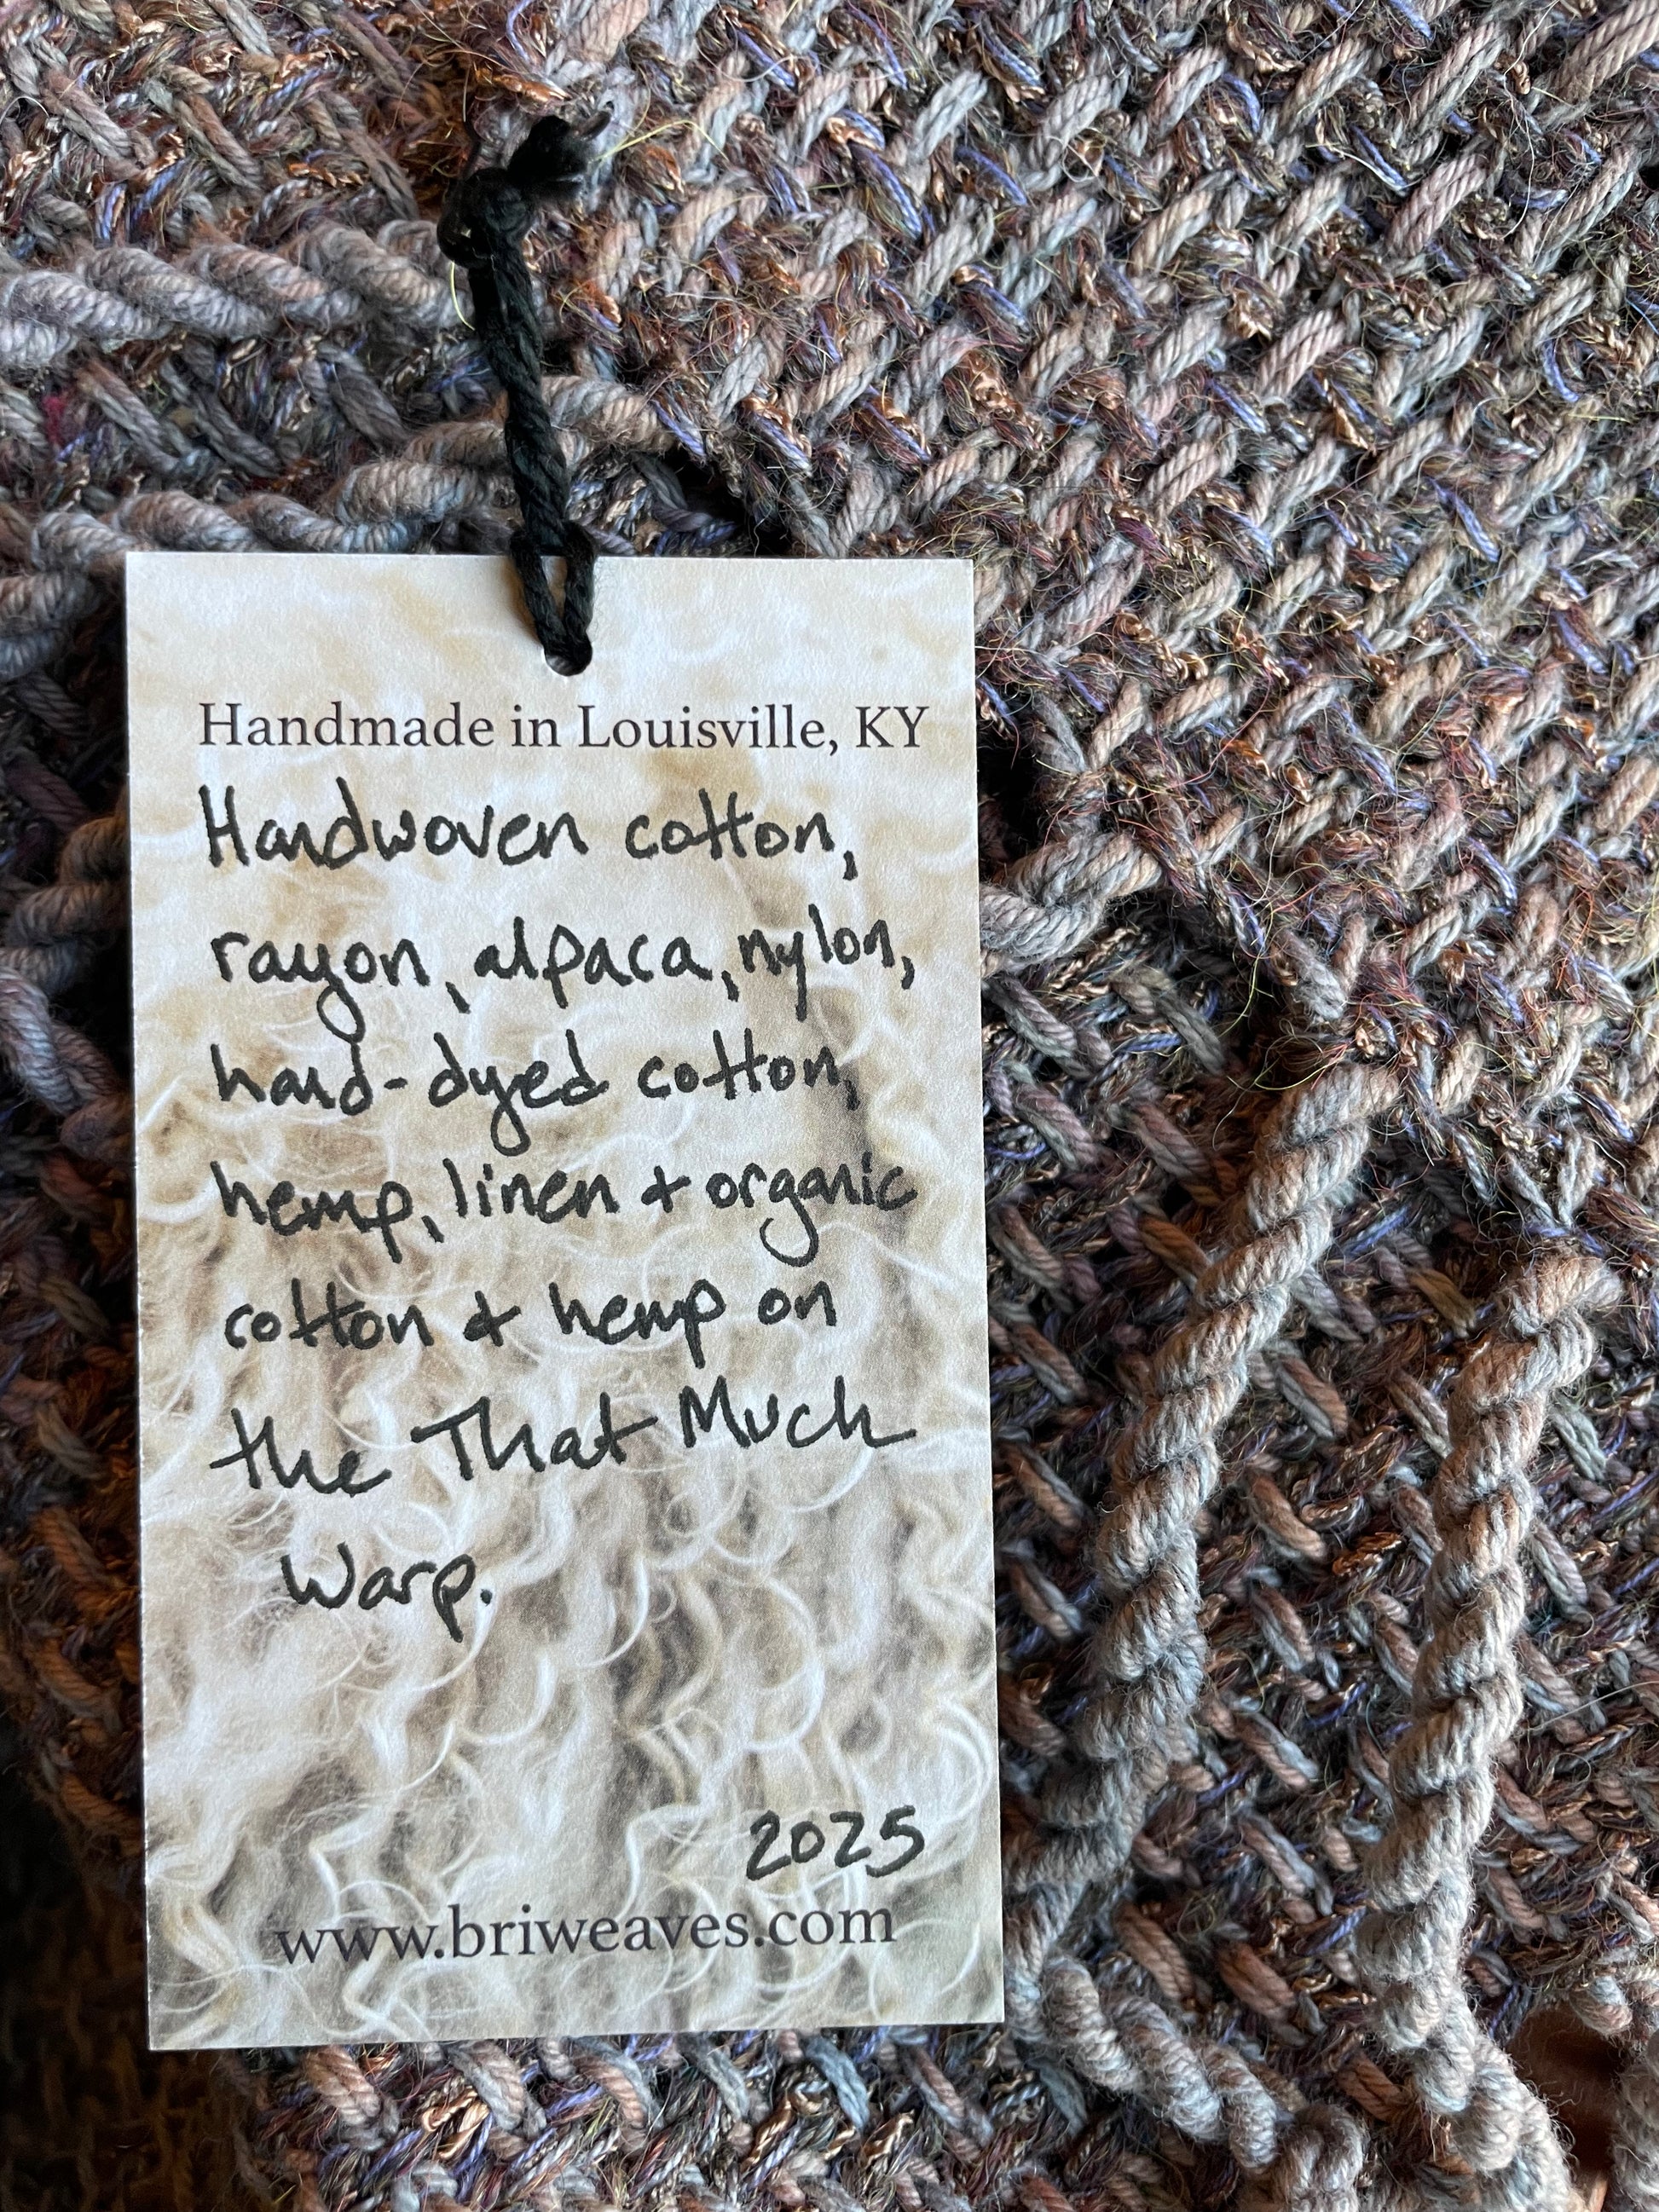 Handmade in Louisville, KY
Handwoven cotton,
rayon, alpaca, nylon,
hand-dyed cotton,
hemp, linen + organic
cotton + hemp on
the That Much
Warp.
2025
www.briweaves.com